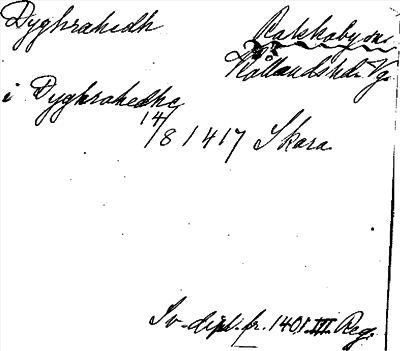 Dyghrahedh
Karlskaby sn.
Kållandshd. Vg.
i Dyghrahedhe
14/8 1417 Skara
Sv. dipl. fr. 1401 III Reg.